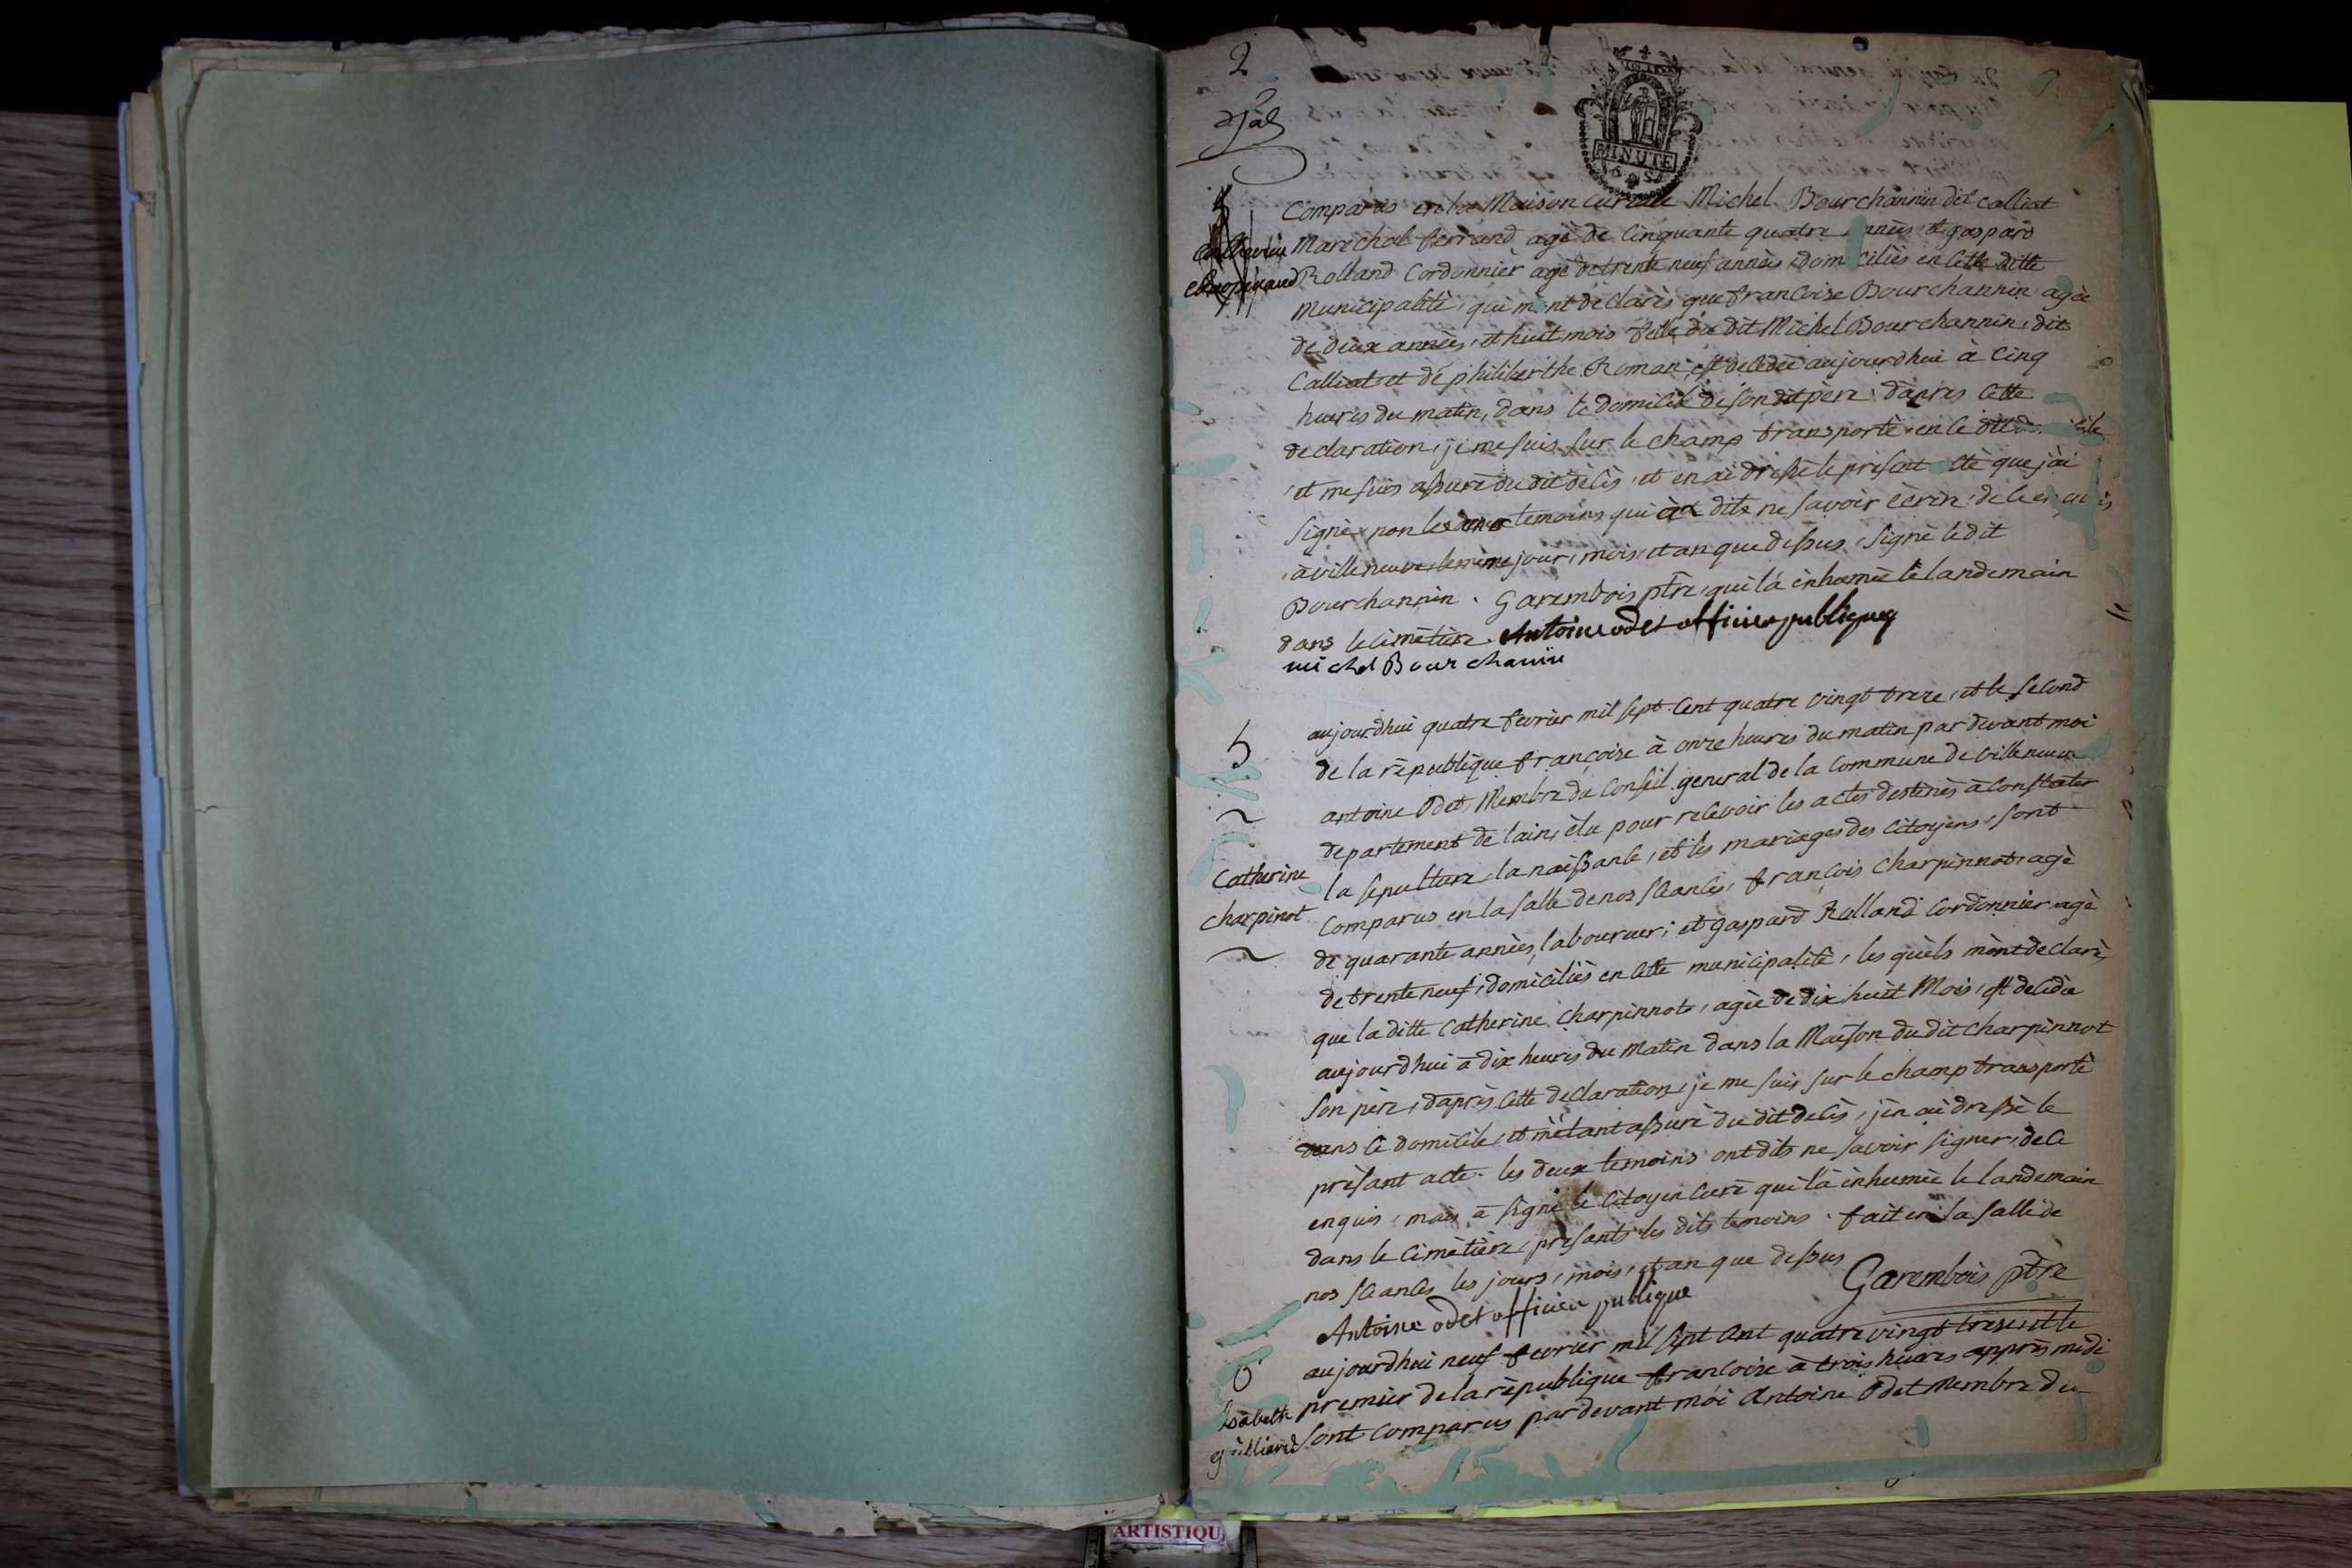 2
MINUTE
Comparus en la Maison curiale Michel Bourchannin dit Calliat
Marechal ferrand agè de Cinquante quatre annèes et gaspard
Rolland Cordonnier agè de trente neuf annèes domiciliès en Cette ditte
Municipalitè, qui mont dèclarès que francoise Bourchannin agèe
de deux annèes, et huit mois fille du dit Michel Bourchannin, dit
Calliat et de philiberthe Roman est decedèe aujourdhui à Cinq
heures du matin, dans le domicile de son dit père. dapres Cette
declaration, je me suis sur le champ transportè en le dit
et me suis assurè du dit décès, et en ai dressè le present que jai
signè non les temoins qui dits ne savoir ècrire de ce
à villeneuve le mème jour, mois, et an que dessus, signè le dit
Bourchannin. Garembois ptre, qui l'à inhumèe le landemain
dans le cimètière. Antoine odet officier publique
michel Bourchanin
5
Catherine
charpinot
aujourdhui quatre fevrier mil sept Cent quatre vingt treze, et le second
de la rèpublique françoise à onze heures du matin par devant moi
antoine Odet, Membre du Conseil general de la Commune de villeneuve
departement de lain, èlu pour recevoir les actes destinès à Constater
la sepulture, la naissance, et les mariages des Citoyens, sont
Comparus en la salle de nos sèances, françois Charpinnot, agè
de quarante annèes, laboureur; et gaspard Rolland Cordonnier agè
de trente neuf, domiciliès en Cette municipalitè, les quèls mont declarè,
que la ditte Catherine Charpinnot, agèe de dix huit Mois, est decèdèe
aujourdhui à dix heures du matin dans la Maison du dit Charpinnot
son père, dapres Cette declaration, je me suis sur le champ transportè
dans le domicile, et m'ètant assurè du dit decès, j'en ai dressè le
prèsant acte. les deux temoins ont dits ne savoir signer, de ce
enquis, mais à signè le Citoyen Curè qui l'à inhumèe le landemain
dans le Cimètière, presants les dits temoins. fait en la salle de
nos sèances les jours, mois, et an que dessus
Garembois ptre
Antoine odet officier publique
6
Isabelle
guilliard
aujourdhui neuf fevrier mil sept Cent quatre vingt treze, et le
premier de la rèpublique francoise à trois heures apprès midi
sont Comparus par devant moi Antoine Odet Membre du
ARTISTIQU